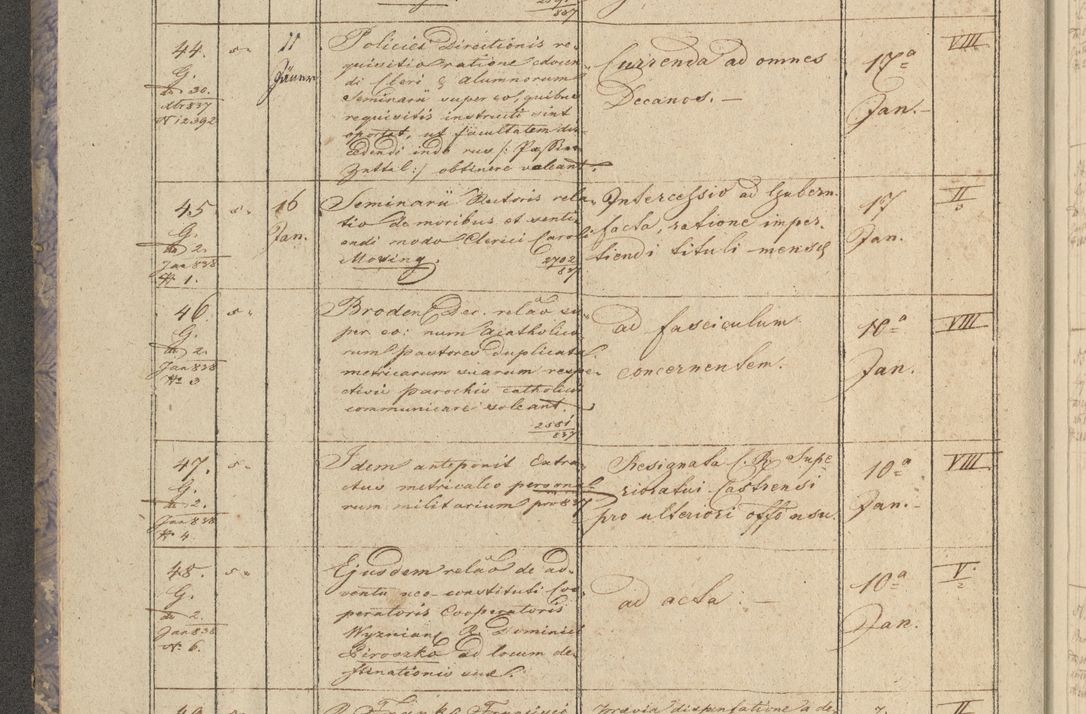 44.
G.
30.
Xbr 837
N 12392
11
Jäner
Policiei Directionis re-
quisitio ratione edocen-
di Cleri & alumnorum
Seminarii super eo, quibus
requisitis instructi sint
oportet, ut facultatem dis-
cedendi indo rus /: Passier
Zettel :/ obtinere valeant.
Currenda ad omnes
Decanos. —
17ª
Jan.
VIII
45
G.
2.
Jan 838
N 1.
16
Jan.
Seminarii Rectoris rela-
tio de moribus et
modo Clerici Caroli
Mosing.
2702
837
Intercessio ad Gubern.
facta, ratione imper-
tiendi tituli mensae
17
Jan.
II
46.
G.
2.
Jan 838
N. 3
Broden Dec. relão su-
per eo: num acatholico-
rum pastores duplicata
metricarum suarum respe-
ctivis parochis catholicis
communicare soleant.
2551
837
ad fasciculum
concernentem.
10ª
Jan.
VIII
47.
G.
2.
Jan 838
N. 4
Idem anteponit Extra-
ctus metricales persona-
rum militarium pro 837
Resignata C. R. Supe-
rioratui Castrensi
pro ulteriori offo usu.
10ª
Jan.
VIII
48.
G.
2.
Jan 838
N. 6.
Ejusdem relão de ad-
ventu neo-constituti Coo-
peratoris Cooperatoris
Wyznian R. Dominici
Piroszka ad locum de-
stinationis suae.
ad acta. —
10ª
Jan.
V
49
Francisci
Praevia dispensatione a de-
II